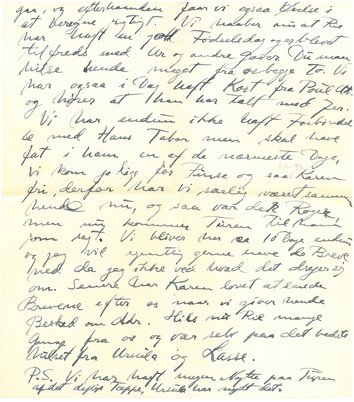 gaa, og efterhaanden faar vi ogsaa
at beregne rigtigt. Vi haaber nu at Re
har haft en god Fødselsdag og er blevet
tilfreds med Ur og andre Gaver. Du maa
hilse hende meget fra os begge to. Vi
har ogsaa i Dag haft Kort fra Poul Ott.
og hører at han har talt med Jer.
Vi har endnu ikke haft Forbindel
se med Hans Tabor men skal have
fat i ham en af de nærmeste Dage,
vi kom jo lige før Pinse og saa Karen
fri derfor har vi særlig været sammen
hende nu, og saa var det Roger,
men nu kommer Turen til ham
som sagt. Vi bliver her ca 10 Dage endnu
og jeg vil gerne have de Breve
med da jeg ikke ved hvad det drejer sig
om. Senere har Karen lovet at sende
Brevene efter os naar vi giver hende
Besked om Adr. Hils nu Rie mange
Gange fra os og vær selv paa det bedste
hilset fra Ursula og Lasse.
P.S. Vi har haft megen Nytte paa Turen
af det dejlige Tæppe, Ursula har nydt det.